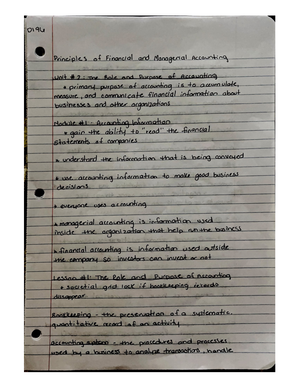 D196
Principles of Financial and Managerial Accounting
Unit #2: The Role and Purpose of Accounting
* primary purpose of accounting is to accumulate,
measure, and communicate financial information about
businesses and other organizations
Module #1: Accounting Information
* gain the ability to "read" the financial
statements of companies
* understand the information that is being conveyed
* use accounting information to make good business
decisions
* everyone uses accounting
* managerial accounting is information used
inside the organization that help run the business
* financial accounting is information used outside
the company so investors can invest or not
Lesson #1: The Role and Purpose of Accounting
* societial grid lock if bookkeeping records
disappear
Bookkeeping - the preservation of a systematic,
quantitative record of an activity
Accounting system - the procedures and processes
used by a business to analyze transactions, handle